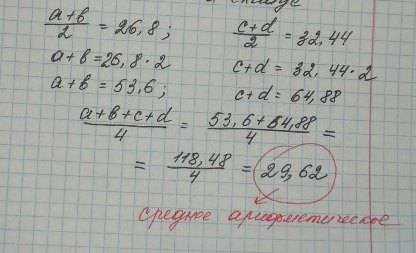 (a+b)/2 = 26,8 ; (c+d)/2 = 32,44
a+b = 26,8·2 c+d = 32,44·2
a+b = 53,6 ; c+d = 64,88
(a+b+c+d)/4 = (53,6+64,88)/4 =
= 118,48/4 = 29,62
среднее арифметическое